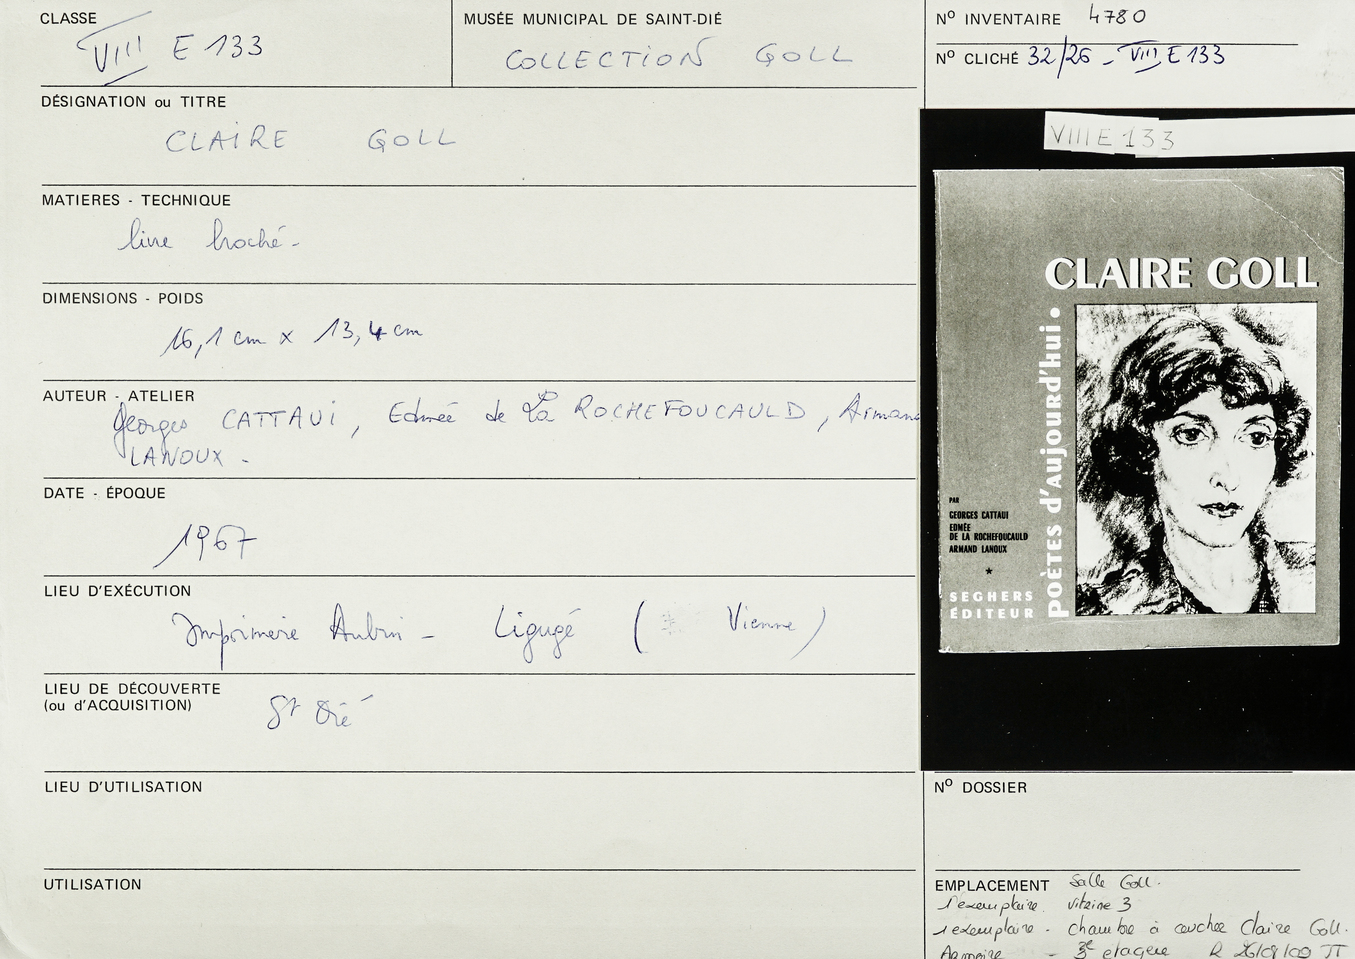 CLASSE
VIII E 133
MUSÉE MUNICIPAL DE SAINT-DIÉ
COLLECTION GOLL
Nº INVENTAIRE 4780
Nº CLICHÉ 32/26 - VIII E 133
DÉSIGNATION ou TITRE
CLAIRE GOLL
MATIERES - TECHNIQUE
livre broché -
DIMENSIONS - POIDS
16,1 cm x 13,4 cm
AUTEUR - ATELIER
Georges CATTAUI, Edmée de La ROCHEFOUCAULD, Armand
LANOUX -
DATE - ÉPOQUE
1967
LIEU D'EXÉCUTION
Imprimerie Aubin - Ligugé ( Vienne )
LIEU DE DÉCOUVERTE
(ou d'ACQUISITION)
St Dié
LIEU D'UTILISATION
UTILISATION
VIII E 133
CLAIRE GOLL
POÈTES d'AUJOURD'HUI.
PAR
GEORGES CATTAUI
EDMÉE
DE LA ROCHEFOUCAULD
ARMAND LANOUX
SEGHERS
ÉDITEUR
Nº DOSSIER
EMPLACEMENT Salle Goll.
1 exemplaire. vitrine 3
1 exemplaire - chambre à coucher Claire Goll.
Armoire - 3e étagère